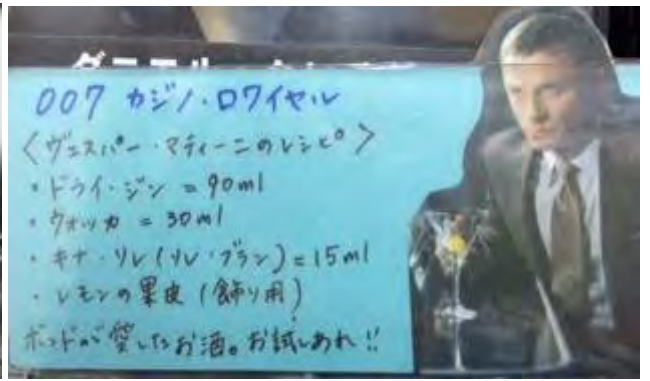 007 カジノ・ロワイヤル
〈ヴェスパー・マティーニのレシピ〉
・ドライ・ジン = 90ml
・ウォッカ = 30ml
・キナ・リレ(リレ・ブラン)= 15ml
・レモンの果皮(飾り用)
ボンドが愛したお酒。お試しあれ!!